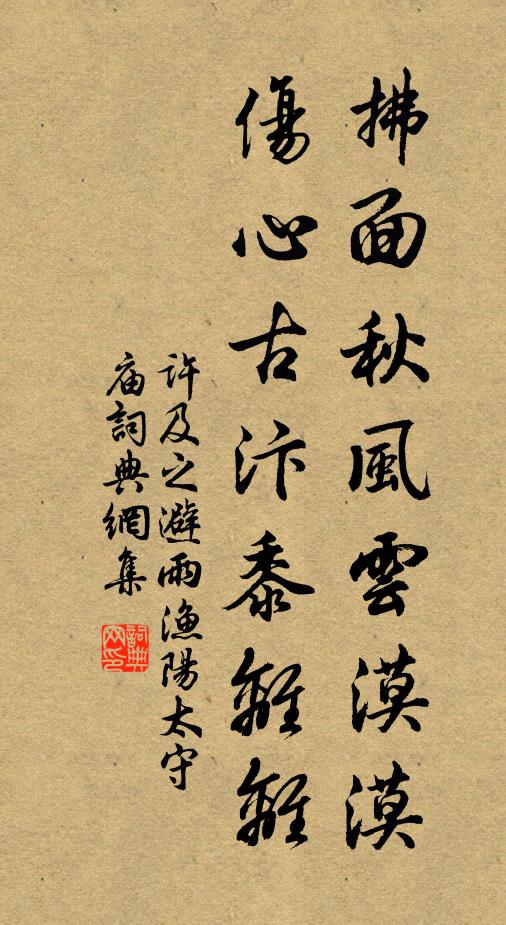 拂面秋風雲漠漠
傷心古汴黍離離
許及之避雨漁陽太守
庙詞典網集
詞典
网印